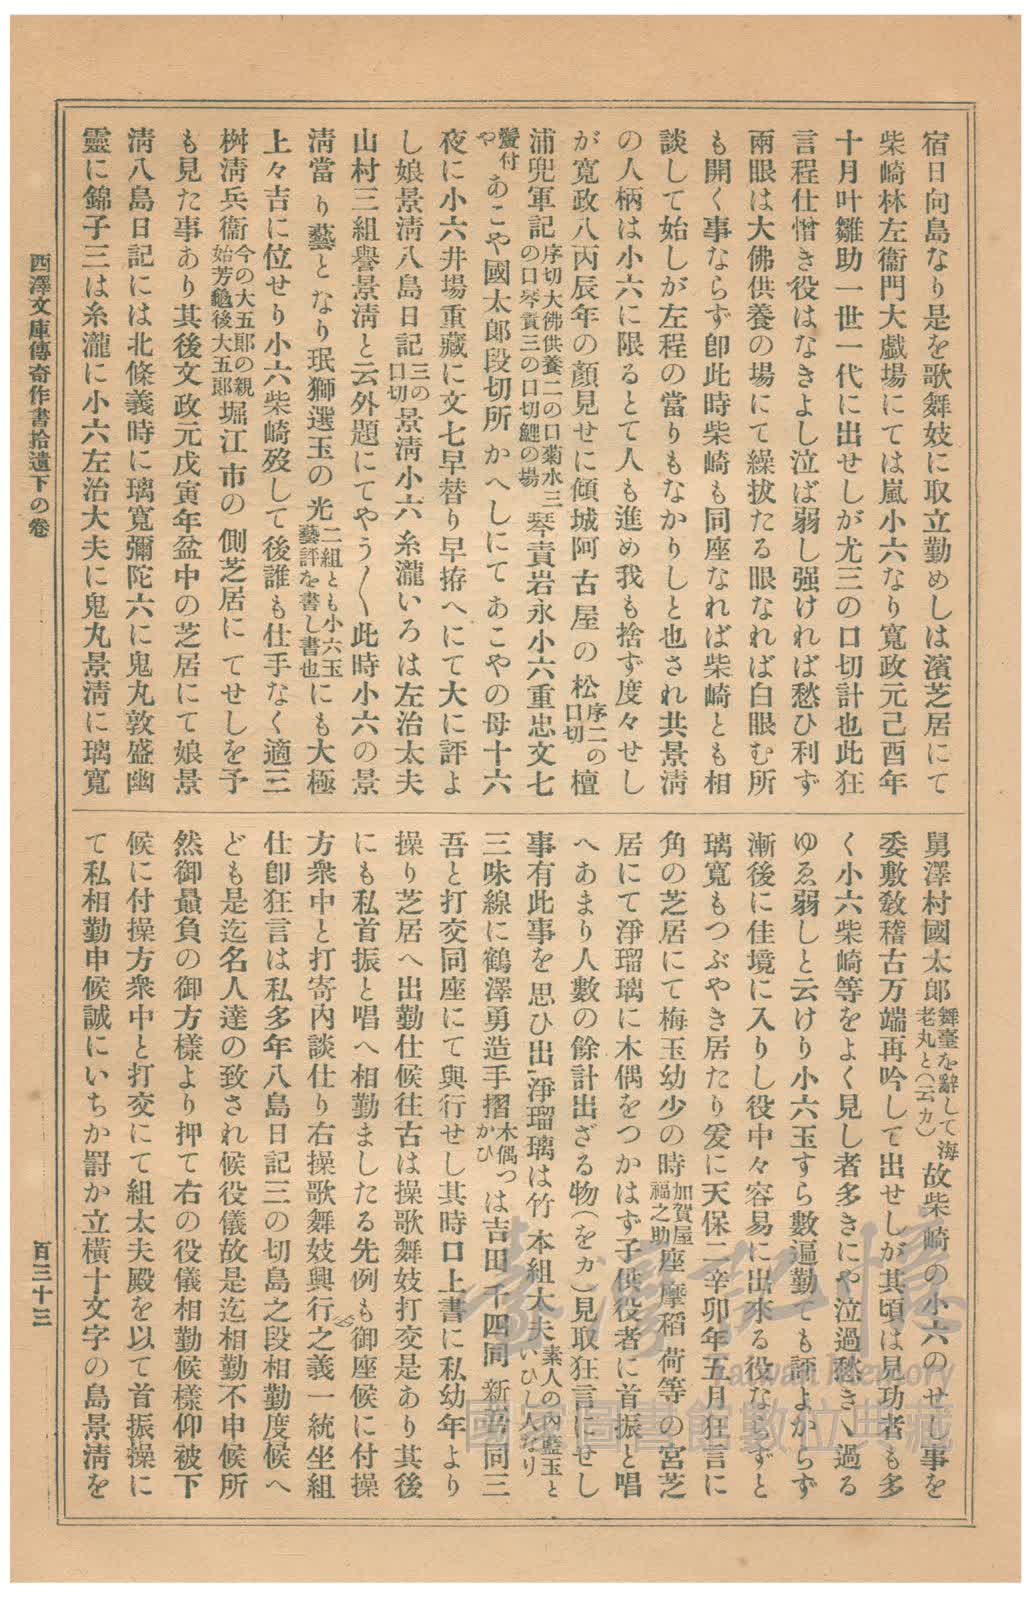 宿日向島なり是を歌舞妓に取立勤めしは濱芝居にて
柴崎林左衞門大戯場にては嵐小六なり寬政元己酉年
十月叶雛助一世一代に出せしが尤三の口切計也此狂
言程仕憎き役はなきよし泣ば弱し强ければ愁ひ利ず
兩眼は大佛供養の場にて繰拔たる眼なれば白眼む所
も開く事ならず卽此時柴崎も同座なれば柴崎とも相
談して始しが左程の當りもなかりしと也され共景淸
の人柄は小六に限るとて人も進め我も捨ず度々せし
が寬政八丙辰年の顏見せに傾城阿古屋の松序二の口切檀
浦兜軍記序切大佛供養二の口菊水三の口琴責三の口切鯉の場琴責岩永小六重忠文七
鬘付やあこや國太郞段切所かへしにてあこやの母十六
夜に小六井場重藏に文七早替り早拵へにて大に評よ
し娘景淸八島日記三の口切景淸小六糸瀧いろは左治太夫
山村三組譽景淸と云外題にてやう〱此時小六の景
淸當り藝となり珉獅選玉の光二組とも小六玉藝評を書し書也にも大極
上々吉に位せり小六柴崎歿して後誰も仕手なく適三
桝淸兵衞今の大五郞の親始芳龜後大五郞堀江市の側芝居にてせしを予
も見た事あり其後文政元戊寅年盆中の芝居にて娘景
淸八島日記には北條義時に璃寬彌陀六に鬼丸敦盛幽
靈に錦子三は糸瀧に小六左治大夫に鬼丸景淸に璃寬
舅澤村國太郞舞臺を辭して海老丸と(云カ)故柴崎の小六のせし事を
委敷敎稽古万端再吟して出せしが其頃は見功者も多
く小六柴崎等をよく見し者多きにや泣過愁きゝ過る
ゆゑ弱しと云けり小六玉すら數遍勤ても評よからず
漸後に佳境に入りし役中々容易に出來る役ならずと
璃寬もつぶやき居たり爰に天保二辛卯年五月狂言に
角の芝居にて梅玉幼少の時加賀屋福之助座摩稻荷等の宮芝
居にて淨瑠璃に木偶をつかはず子供役者に首振と唱
へあまり人數の餘計出ざる物(をカ)見取狂言にせし
事有此事を思ひ出淨瑠璃は竹本組太夫素人の内藍玉といひし人なり
三味線に鶴澤勇造手摺木偶つかひは吉田千四同新吾同三
吾と打交同座にて興行せし其時口上書に私幼年より
操り芝居へ出勤仕候往古は操歌舞妓打交是あり其後
にも私首振と唱へ相勤ましたる先例も御座候に付操
方衆中と打寄内談仕り右操歌舞妓興行之義一統坐組
仕卽狂言は私多年八島日記三の切島之段相勤度候へ
ども是迄名人達の致され候役儀故是迄相勤不申候所
然御贔負の御方樣より押て右の役儀相勤候樣仰被下
候に付操方衆中と打交にて組太夫殿を以て首振操に
て私相勤申候誠にいちか罸か立橫十文字の島景淸を
西澤文庫傳奇作書拾遺下の卷
百三十三
臺灣記憶
Taiwan Memory
國家圖書館數位典藏